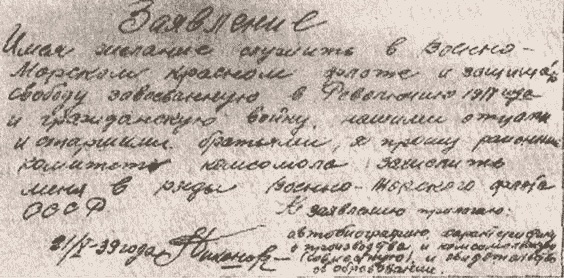 Заявление
Имая желание служить в Военно-
Морском Красном флоте и защища-
свободу завоеванную в Революцию 1917 года
и гражданскую войну нашими отцами
и старшими братьями, я прошу районный
комитет комсомола зачислить
меня в ряды Военно-Морского флота
СССР
К заявлению прилагаю:
автобиографию, характеристику
с производства и комсомольскую
(совместную) и свидетельство
об образовании.
39 года